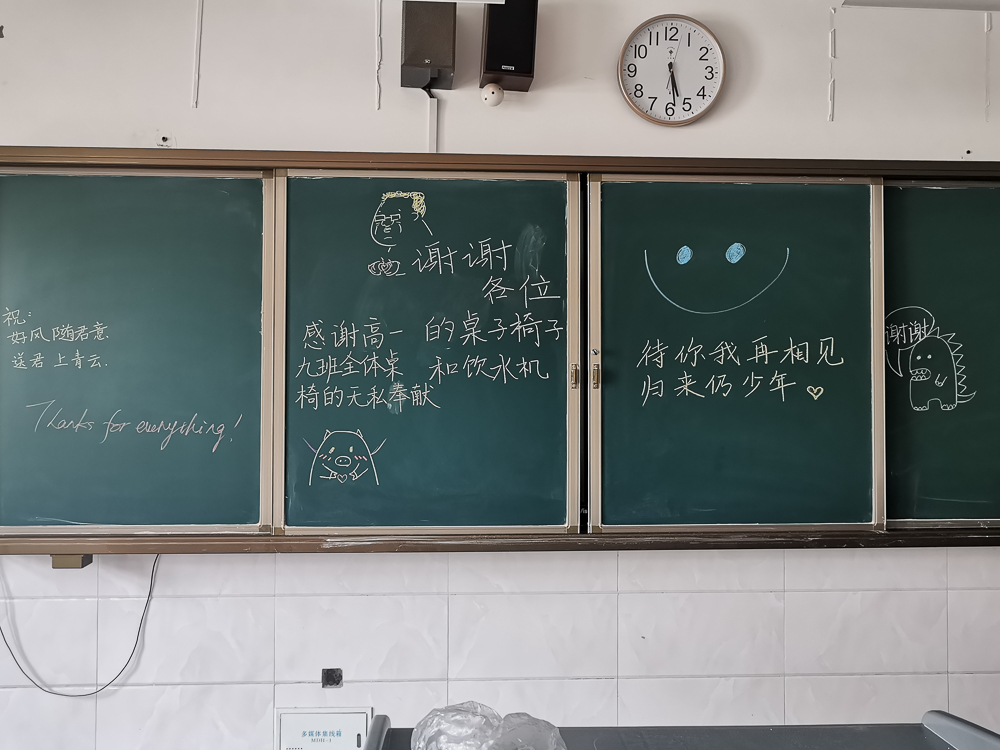 祝:
好风随君意
送君上青云.
Thanks for everything!
谢谢
各位
的桌子椅子
和饮水机
感谢高一
九班全体桌
椅的无私奉献
待你我再相见
归来仍少年
谢谢
12
1
2
3
4
5
6
7
8
9
10
11
多媒体集线箱